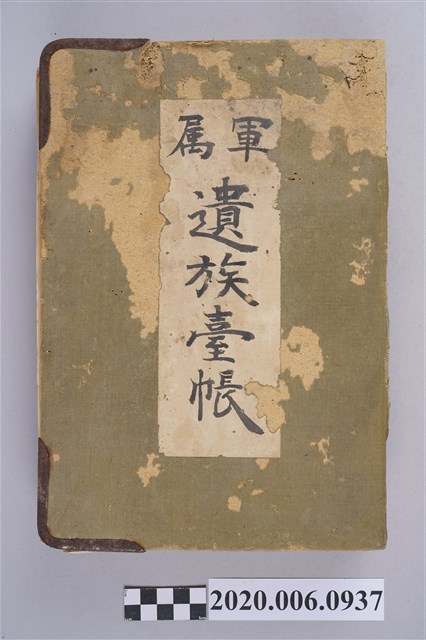 軍属
遺族臺帳
2020.006.0937